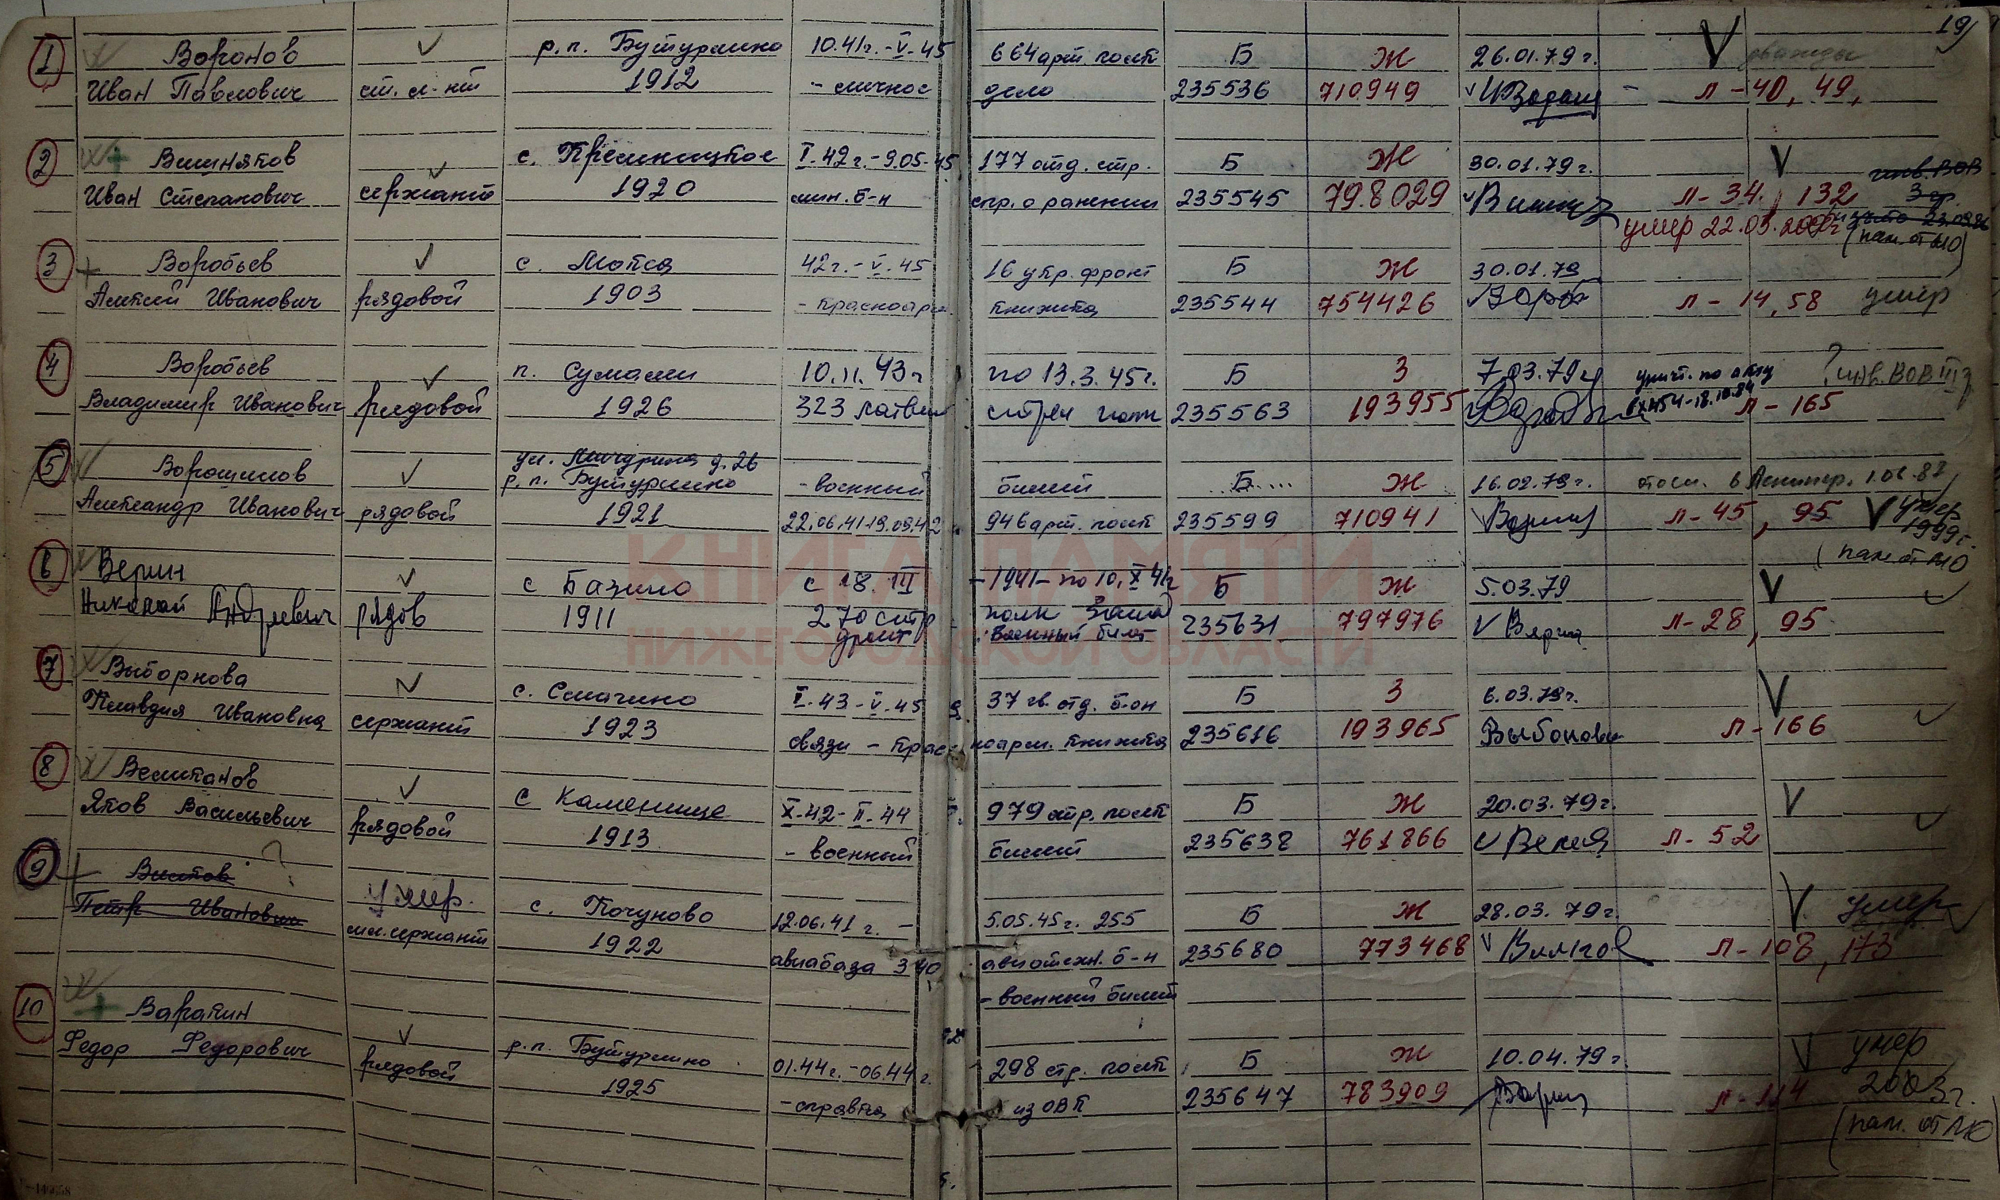 19
1 Воронов р.п. Бутурлино 10.41г.-V.45 664 арт. полк Б Ж 26.01.79г.
Иван Павлович ст. л-нт 1912 - личное дело 235536 710949 л-40, 49,
2 Вишняков с. Кремницкое I.42г.-9.05.45 177 отд. стр. Б Ж 30.01.79г.
Иван Степанович сержант 1920 мин. б-н спр. о ранении 235545 798029 л-34, 132
умер 22.03. (пам. от МО)
3 Воробьев с. 42г.-V.45 16 упр. фронт Б Ж 30.01.79
Алексей Иванович рядовой 1903 - красноарм. книжка 235544 754426 л-14, 58 умер
4 Воробьев п. Сумами 10.11.43г по 13.3.45г. Б З 7.03.79г ? инв. ВОВ III г
Владимир Иванович рядовой 1926 323 стрел полк 235563 193955 л-165
5 Ворошилов ул. Мичурина д.26
р.п. Бутурлино - военный билет Б Ж 16.02.79г. 1.06.87
Александр Иванович рядовой 1921 22.06.41-19.09.42 946 арт. полк 235599 710941 л-45, 95 умер 1999г.
(пам. от МО
6 Верин с Базино с 18.III -1941- по 10.X 41г Б Ж 5.03.79
Николай Андреевич рядов 1911 270 стр полк 235631 797976 л-28, 95
Военный билет
7 Выборнова с. Смагино I.43-V.45 37 гв. отд. б-он Б З 6.03.79г.
Клавдия Ивановна сержант 1923 связи - красноарм. книжка 235616 193965 л-166
8 Великанов с Каменище X.42-II.44 979 стр. полк Б Ж 20.03.79г.
Яков Васильевич рядовой 1913 - военный билет 235638 761866 л-52
9 ? умер. с. Кочуново 12.06.41г. - 5.05.45г. 255 Б Ж 28.03.79г. умер
Петр Иванович мл. сержант 1922 авиабаза 340 авиатехн. б-н 235680 773468 л-108, 173
- военный билет
10 Варакин р.п. Бутурлино 01.44г.-06.44г. 298 стр. полк Б Ж 10.04.79г. умер
Федор Федорович рядовой 1925 - справка из ОВК 235647 783909 л-114 2003г.
(пам. от МО
КНИГА ПАМЯТИ
НИЖЕГОРОДСКОЙ ОБЛАСТИ